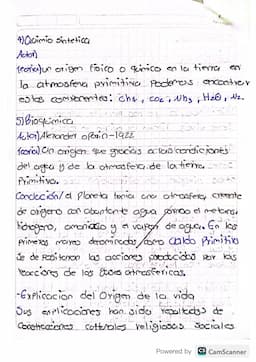 4)Quimio sintetica
Autor/
teoria/un origen fisico o quimico en la tierra en
la atmosfera primitiva Podemos encontrar
estos componentes: CH4, CO2, NH3, H2O, N2.
5)Bioquimica
Autor/Alexander oparin-1922
teoria/Un origen que gracias a las condiciones
del agua y de la atmosfera de la tierra
Primitiva.
Conclución/el Planeta tenia una atmosfera carente
de oxigeno con abundante agua como el metano,
hidrogeno, amoniaco y el vapor de agua. En los
Primeros mares denominados como Caldo Primitivo
se depositaron las acciones producidas por las
reacciones de los atmosfericas.
-Explicacion del Origen de la vida
Sus explicaciones han sido resultados de
Construcciones culturales religiosas sociales
Powered by CS CamScanner